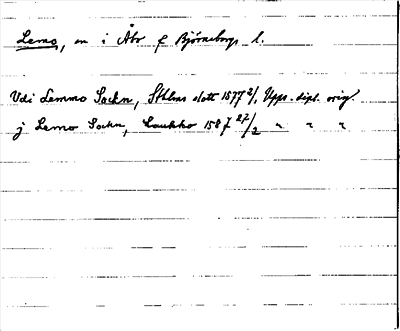 Lemo, sn i Åbo o Björneborgs l.
Vdi Lemmo Sockn, Sthlms slott 1577 2/1, Upps. dipl. orig.
j Lemo Sockn, Laukko 1587 27/2 " " "